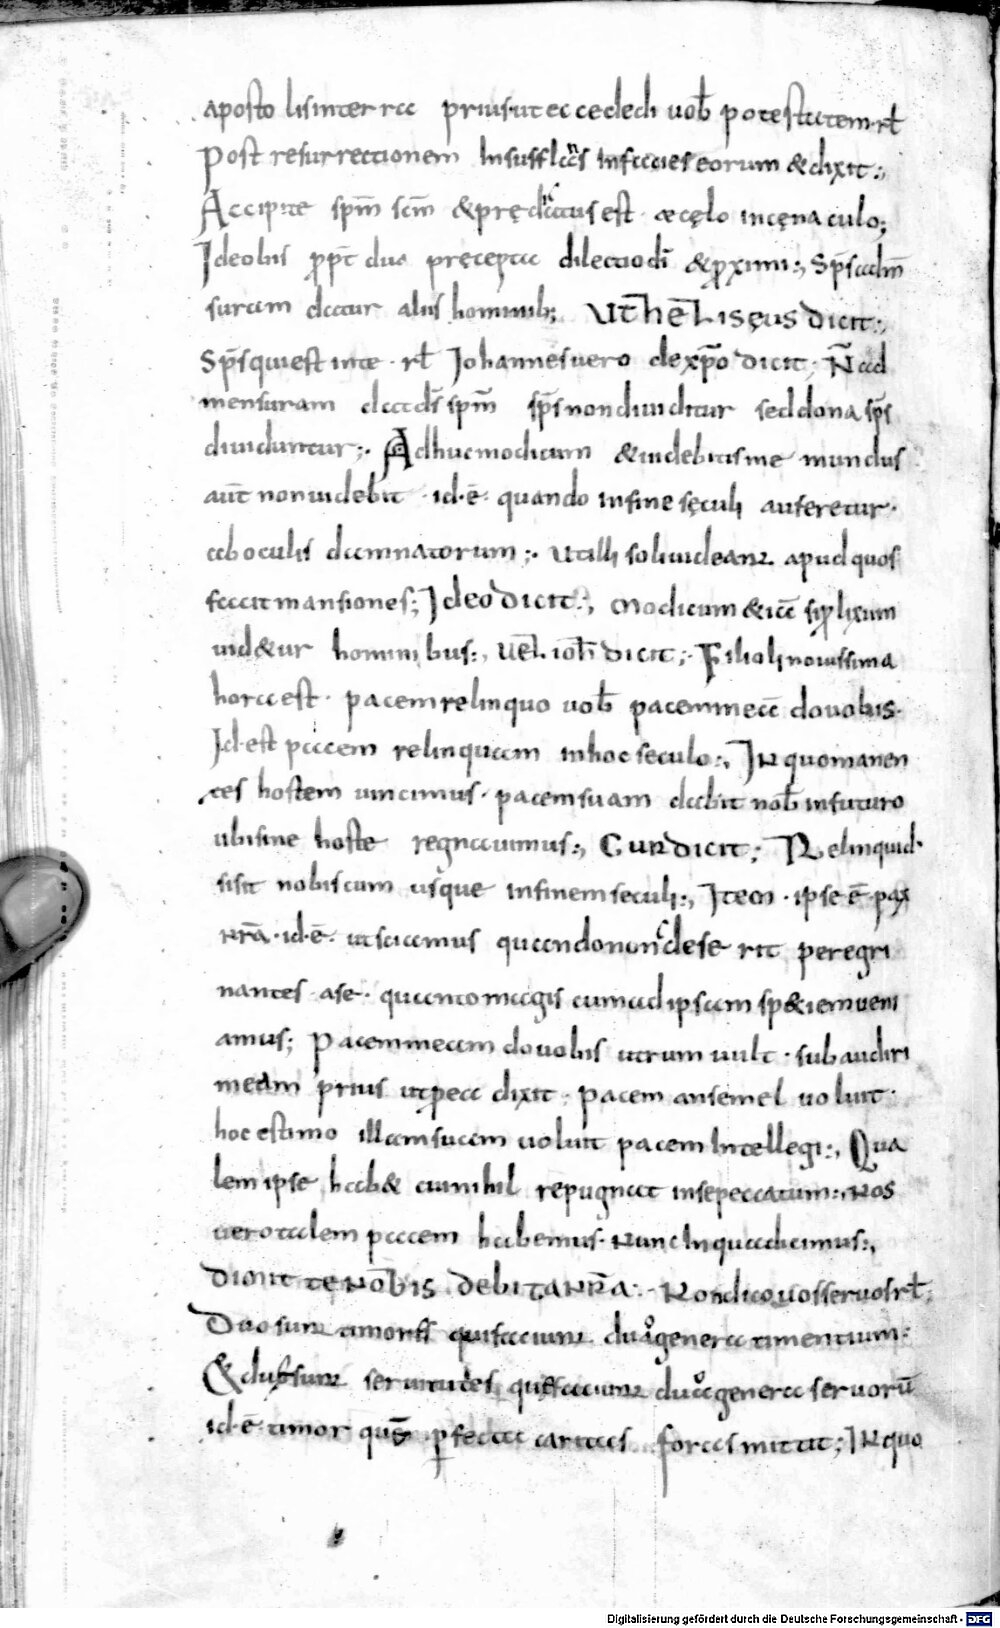 aposto lis interra prius ut ecce dedi uob̄ potestatem · rł
Post resurrectionem Insufflans Infacies eorum & dixit:,
Accipite sp̄m sc̄m & prędicatus est · a cęlo incęnaculo;
Ideobis propt̄ duo pręcepta dilectio dī & proximi:, Sp̄s adm̄
suram datur aliis hominib; UT hēLisęus dicit:,
Sp̄s qui est inte · rł Johannes uero de xp̄o dicit; N̄ ad
mensuram dat dī sp̄m sp̄s non diuiditur sed dona sp̄s
diuiduntur;· Adhuc modicum & iudebitis me mundus
aūt non uidebit · id · ē · quando infine sęculi auferetur ·
ab oculis damnatorum;· Ut illi soli uideant apud quos
facit mansiones; Ideo dicit:, Modicum & iā si prolixum
uid&ur hominibus:, uel ioh̄ dicit;· Filioli nouissima
hora est · pacem relinquo uob̄ pacem meā do uobis ·
Id · est pacem relinquam in hoc seculo:, IN quo manen
tes hostem uincimus · pacem suam dabit nob̄ in futuro
ubi sine hoste regnauimus:, CuR dicit; Relinquid ·
si sit nobiscum usque infinem seculi:, Item · ipse ē · pax
nrā · id · ē · ut sciamus quando non deserit peregri
nantes ase · quanto magis cum ad ipsam sp&iem ueni
amus; Pacem meam do uobis utrum uult · subaudiri
meam prius ut p̄ea dixit · pacem an semel uoluit ·
hoc estimo illam suam uoluit pacem Intellegi:, Qua
lem ipse hab& cui nihil repugnat inse peccatum:, Nos
uero talem pacem habemus · Nunc Inqua dicimus:,
Dimitte Nob̄is debita NRā:· Non dico uos seruos rł;
Duo sunt timores qui faciunt duo genera timentium:·
& duę sunt seruitutes quę faciunt duo genera seruorū
id · ē · timor quē perfecta caritas foras mittit; IN quo
Digitalisierung gefördert durch die Deutsche Forschungsgemeinschaft - DFG